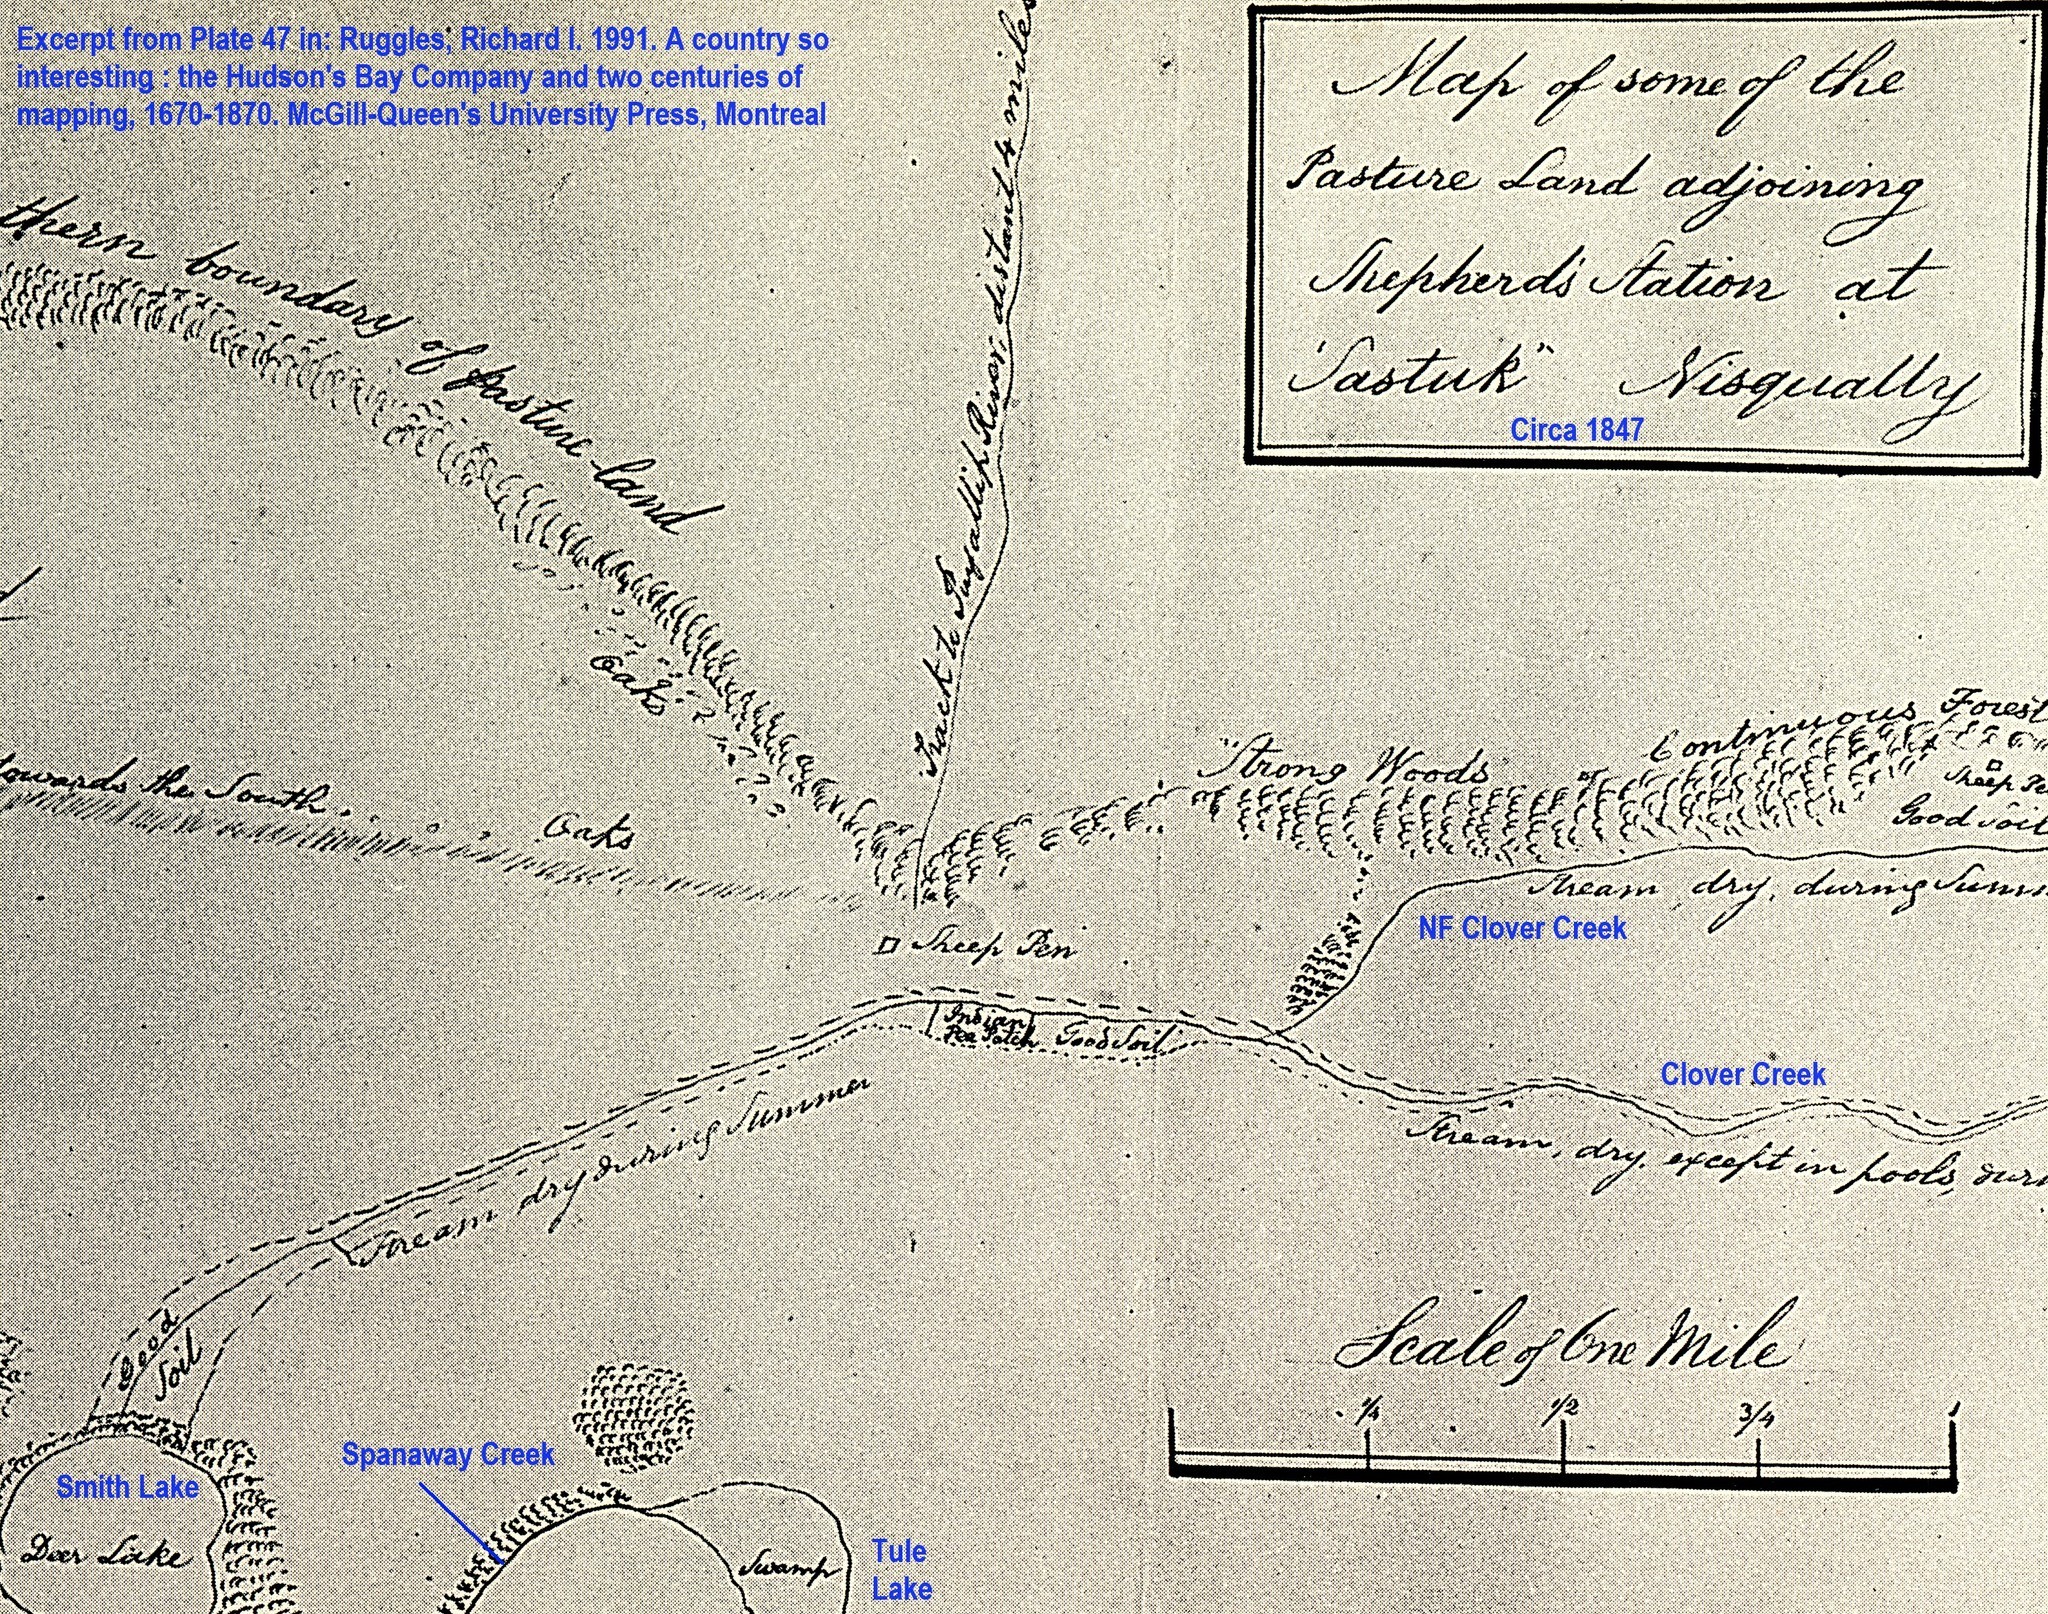 Excerpt from Plate 47 in: Ruggles, Richard I. 1991. A country so
interesting : the Hudson's Bay Company and two centuries of
mapping, 1670-1870. McGill-Queen's University Press, Montreal
Map of some of the
Pasture Land adjoining
Shepherd's Station at
"Sastuk" Nisqually
Circa 1847
thern boundary of pasture-land
Track to Puyallip River, distant 4 miles
Oaks
towards the South.
Oaks
"Strong Woods
Continuous Forest
Sheep Pe
Good Soil
Stream dry, during Summ
NF Clover Creek
Sheep Pen
Indian
Pea Patch
Good Soil
Clover Creek
Stream, dry, except in pools, duri
Stream dry during Summer
Good
Soil
Scale of One Mile
1/4 1/2 3/4 1
Spanaway Creek
Smith Lake
Deer Lake
Swamp
Tule
Lake